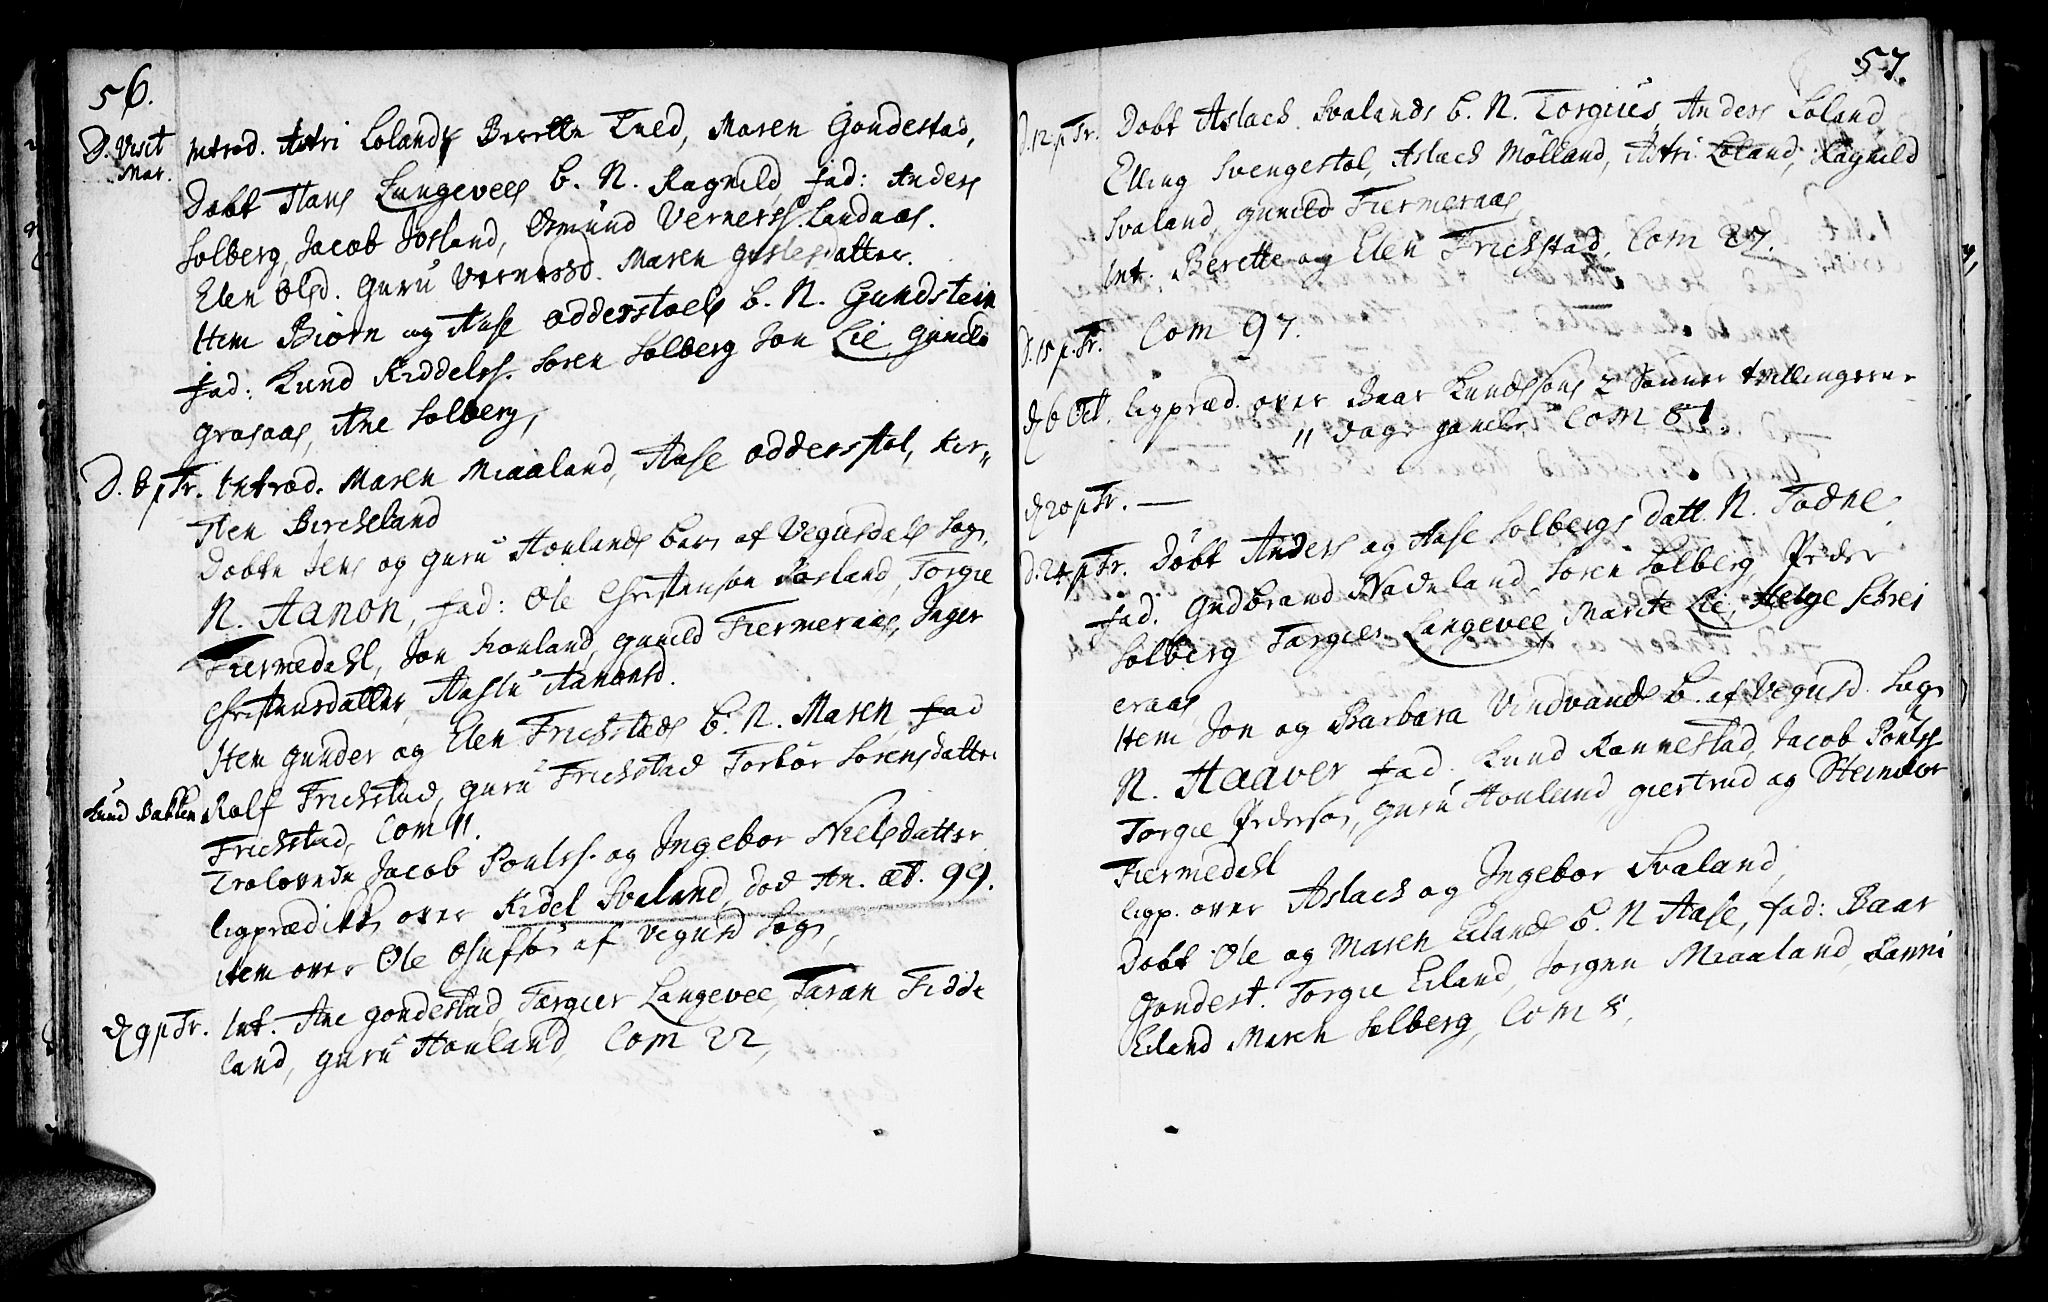 56.
D. Visit Introd. Astri Lolands Berette Tved, Maren Gondestad,
Mar.
Døbt Hans Langevels b. N. Ragnild, fad: Anders
Solberg, Jacob Josland, Osmund Vernerss. Landaas.
Elen Olsd. Guru Vernersd. Maren datter.
Item Biørn og Aase Odderstoels b. N. Gundstein
fad: Knud Kiddelss. Soren Solberg Jon Lie Gunild
Grosaas, Ane Solberg,
D. 8 p Tr. Introd. Maren Miaaland, Aase Odderstøl, Kir-
sten Bircheland
Døbtn Jens og Guru Honlands barn af Vegusdals Sogn,
N. Aanon, fad: Ole Christenson Josland, Torgie
Fiermedahl, Jon Honland, Gunild Fiermeraas, Inger
Christensdatter, Aaslu Aanonsd.
Item Gunder og Elen Frichstads b. N. Maren, fad
Knud Bakken Rolf Frichstad, Guru Frichstad Torbor Sorensdatter
Frichstad, Com 11.
Trolovede Jacob Poulss. og Ingebor Nielsdatter
ligprædikk over Kidel Svaland, død An. æt. 99.
item over Ole Olufsøn af Vegusd Sogn,
D. 9 p Tr. Int. Ane Gondestad, Targier Langevee, Taran Fidde
land, Guru Honland, Com 22,
57.
D. 12 p Tr. Døbt Aslach Svalands b. N. Torgius Anders Loland
Elling Svengestøl, Aslach Mølland, Astri Loland, Ragnild
Svaland, Gunild Fiermeraas
Int: Berette og Elen Frichstad, Com 27.
D. 15 p. Tr. Com 97.
d 6 Oct. ligpræd. over Baar Knudssøns 2 Sønner tvillingerne
11 dage gamle Com 81
D 20 p Tr. —
D. 24 p Tr. Døbt Anders og Aase Solbergs datt. N. Todne
fad. Gudbrand Nadeland, Soren Solberg, Peder
Solberg Targier Langevee Marite Lie, Helge Schrei
eraas
Item Jon og Barbara Vindvands b. af Vegusd. Sogn
N. Haaver, fad. Knud Rannestad, Jacob Poulss
Torgie Pedersøn, Guru Honland, Giertrud og Steinvor
Fiermedahl
ligp. over Aslach og Ingebor Svaland,
Døbt Ole og Maren Eilands b. N Aase, fad: Baar
Gondest. Torgie Eiland, Jørgen Miaaland,
Eiland Maren Solberg, Com 8,